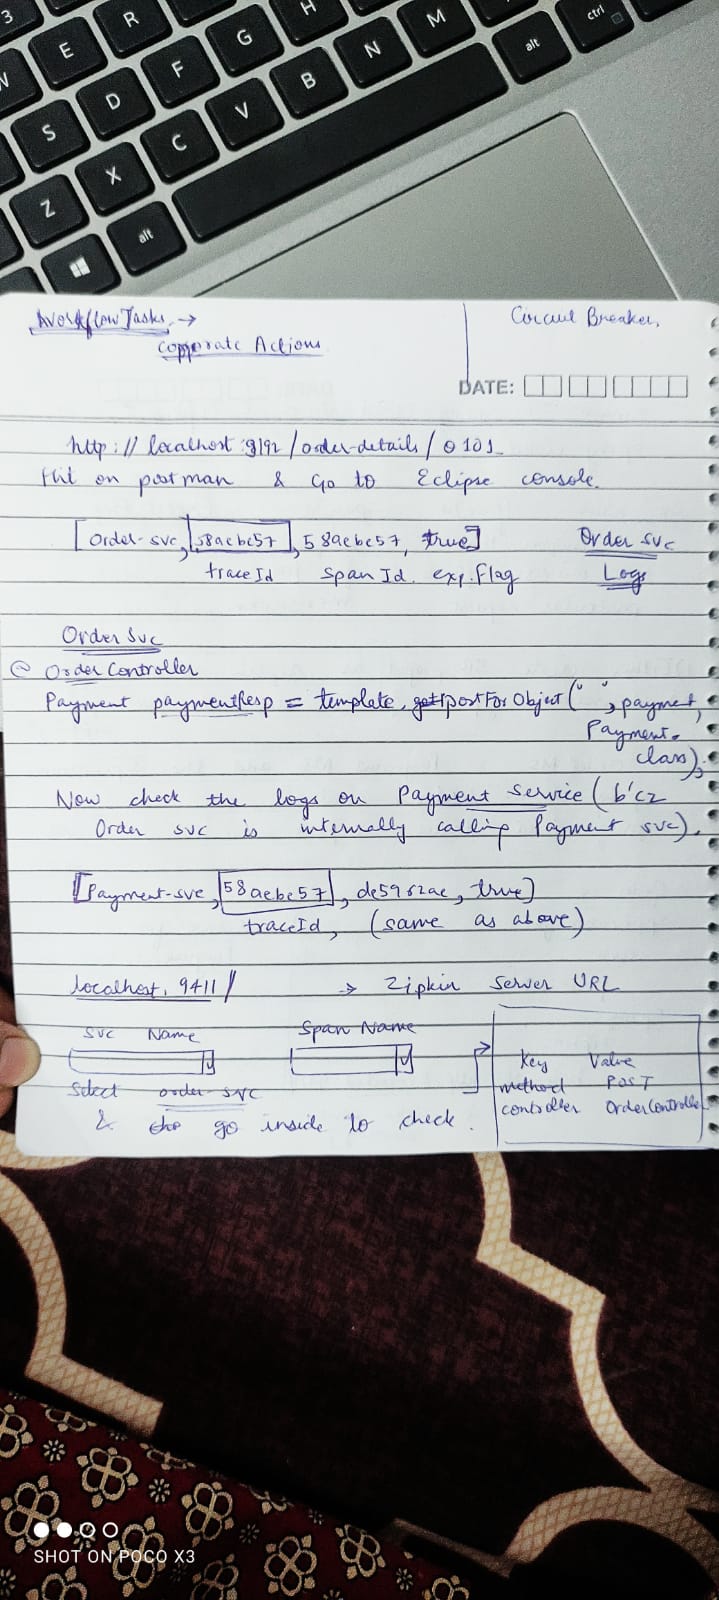 3 E R G H
W S D F V B N M alt ctrl
Z X C
alt
Workflow Tasks →
Copporate Actions
Circuit Breaker,
DATE:
http://localhost:9192/order-details/0101
Hit on postman & Go to Eclipse console.
[Order-svc, 58aebc57, 58aebc57, true] Order svc
traceId span Id. exp. flag Logs
Order Svc
@ Order Controller
Payment paymentResp = template. postForObject(" ", payment,
Payment.
class);
Now check the logs on Payment Service (b'cz
Order svc is internally calling Payment svc).
[Payment-svc, 58aebc57, de5962ac, true]
traceId, (same as above)
localhost. 9411/ → Zipkin Server URL
Svc Name Span Name
Key Value
Select order-svc method POST
controller OrderController
& go inside to check.
SHOT ON POCO X3